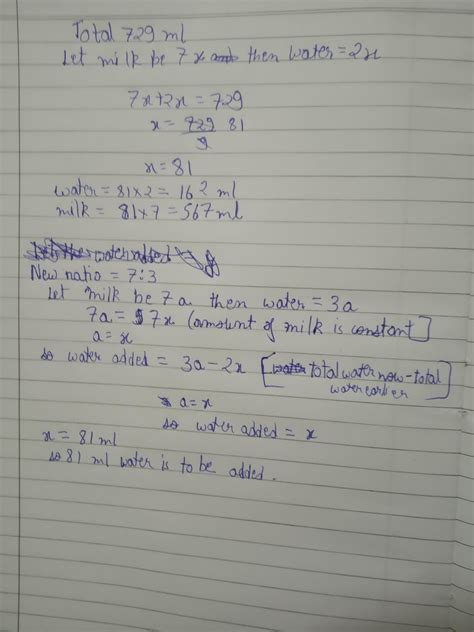 Total 729 ml
Let milk be 7x then water = 2x
7x+2x = 729
x = 729 81
9
x = 81
water = 81×2 = 162 ml
milk = 81×7 = 567 ml
water added
New ratio = 7:3
Let milk be 7a then water = 3a
7a = 7x (amount of milk is constant]
a = x
so water added = 3a-2x [total water now-total
water earlier]
a = x
so water added = x
x = 81 ml
so 81 ml water is to be added.